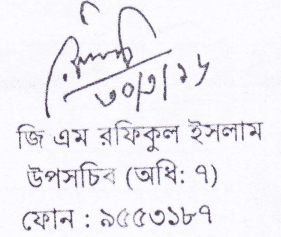 ৩০/৩/১৬
জি এম রফিকুল ইসলাম
উপসচিব (অধি: ৭)
ফোন : ৯৫৫৩১৮৭